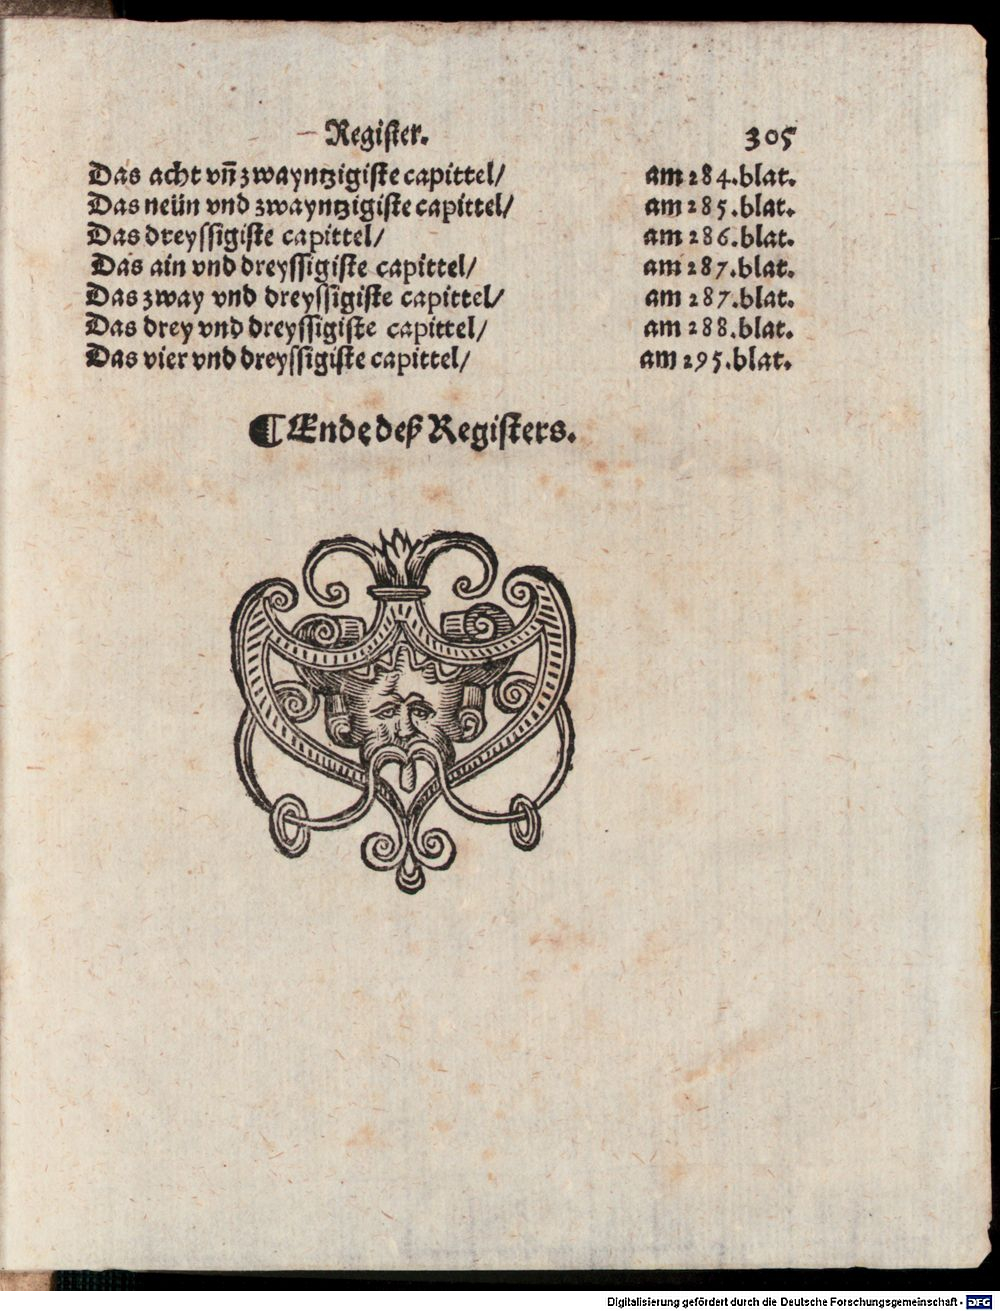 Register. 305
Das acht vñ zwayntzigiste capittel/ am 284.blat.
Das neün vnd zwayntzigiste capittel/ am 285.blat.
Das dreyssigiste capittel/ am 286.blat.
Das ain vnd dreyssigiste capittel/ am 287.blat.
Das zway vnd dreyssigiste capittel/ am 287.blat.
Das drey vnd dreyssigiste capittel/ am 288.blat.
Das vier vnd dreyssigiste capittel/ am 295.blat.
¶ Ende deß Registers.
Digitalisierung gefördert durch die Deutsche Forschungsgemeinschaft - DFG